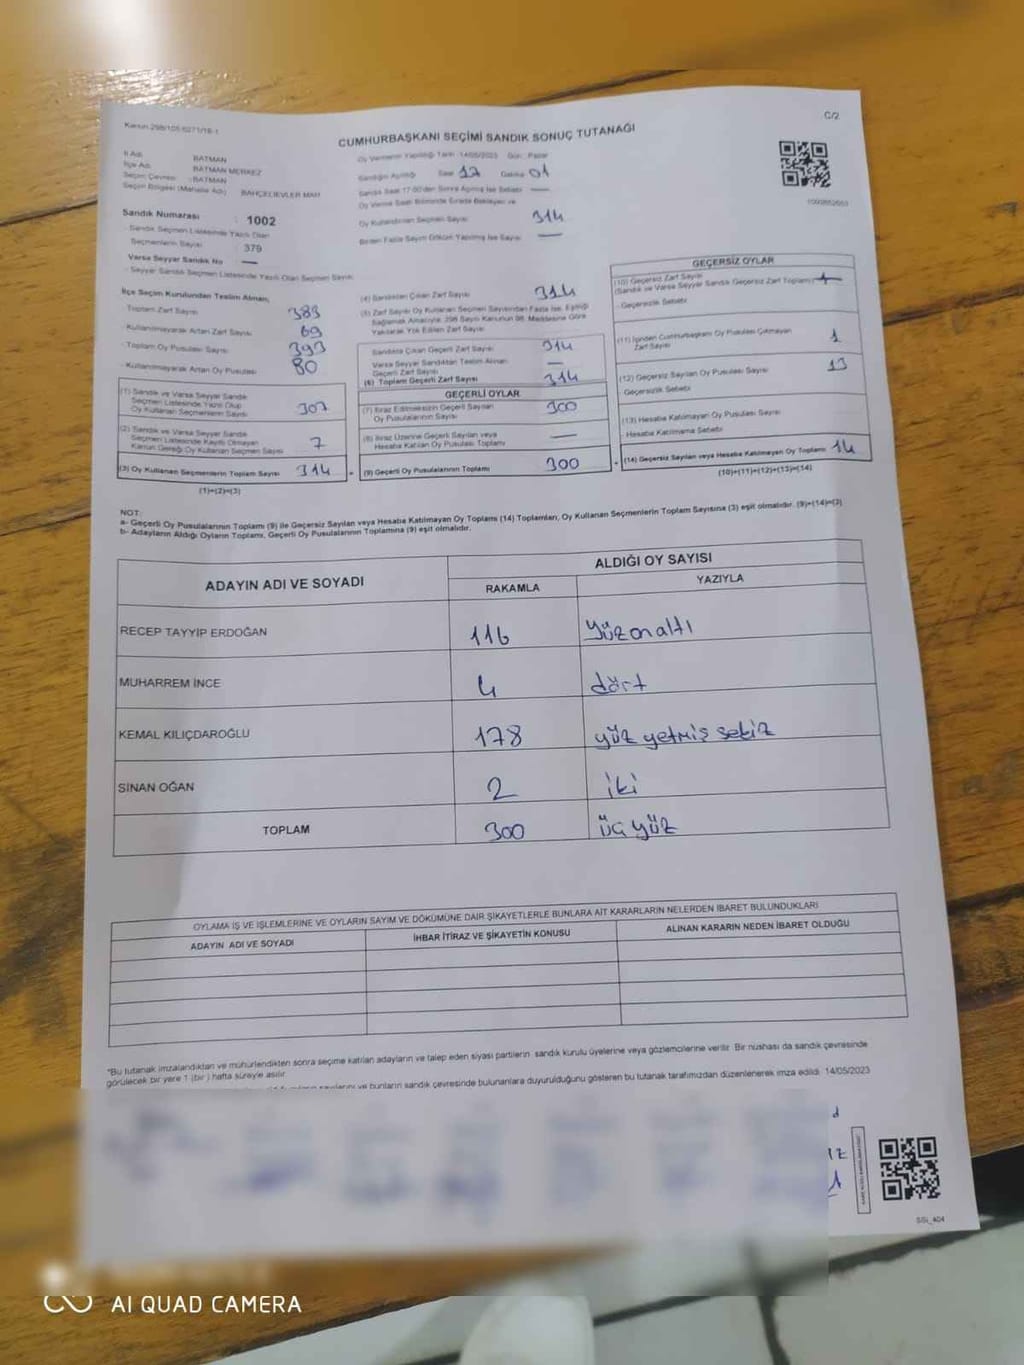 Kanun 298/105 6271/18-1
C/2
CUMHURBAŞKANI SEÇİMİ SANDIK SONUÇ TUTANAĞI
İl Adı: BATMAN
İlçe Adı: BATMAN MERKEZ
Seçim Çevresi: BATMAN
Seçim Bölgesi (Mahalle Adı) BAHÇELİEVLER MAH
Sandık Numarası : 1002
- Sandık Seçmen Listesinde Yazılı Olan
Seçmenlerin Sayısı : 379
Varsa Seyyar Sandık No —
- Seyyar Sandık Seçmen Listesinde Yazılı Olan Seçmen Sayısı
Oy Vermenin Yapıldığı Tarih :14/05/2023 Gün : Pazar
Sandığın Açıldığı Saat 17 Dakika 01
Sandık Saat 17:00'den Sonra Açılmış İse Sebebi —
Oy Verme Saati Bitiminde Sırada Bekleyen ve
Oy Kullandırılan Seçmen Sayısı 314
Birden Fazla Sayım Döküm Yapılmış İse Sayısı —
İlçe Seçim Kurulundan Teslim Alınan;
- Toplam Zarf Sayısı 383
- Kullanılmayarak Artan Zarf Sayısı 69
- Toplam Oy Pusulası Sayısı 393
- Kullanılmayarak Artan Oy Pusulası 80
(1) Sandık ve Varsa Seyyar Sandık
Seçmen Listesinde Yazılı Olup
Oy Kullanan Seçmenlerin Sayısı 307
(2) Sandık ve Varsa Seyyar Sandık
Seçmen Listesinde Kayıtlı Olmayan
Kanun Gereği Oy Kullanan Seçmen Sayısı 7
(3) Oy Kullanan Seçmenlerin Toplam Sayısı 314
(1)+(2)=(3)
(4) Sandıktan Çıkan Zarf Sayısı 314
(5) Zarf Sayısı Oy Kullanan Seçmen Sayısından Fazla İse, Eşitliği
Sağlamak Amacıyla, 298 Sayılı Kanunun 98. Maddesine Göre
Yakılarak Yok Edilen Zarf Sayısı
Sandıkta Çıkan Geçerli Zarf Sayısı 314
Varsa Seyyar Sandıktan Teslim Alınan
Geçerli Zarf Sayısı —
(6) Toplam Geçerli Zarf Sayısı 314
GEÇERLİ OYLAR
(7) İtiraz Edilmeksizin Geçerli Sayılan
Oy Pusulalarının Sayısı 300
(8) İtiraz Üzerine Geçerli Sayılan veya
Hesaba Katılan Oy Pusulası Toplamı —
(9) Geçerli Oy Pusulalarının Toplamı 300
GEÇERSİZ OYLAR
(10) Geçersiz Zarf Sayısı
(Sandık ve Varsa Seyyar Sandık Geçersiz Zarf Toplamı)
- Geçersizlik Sebebi:
(11) İçinden Cumhurbaşkanı Oy Pusulası Çıkmayan
Zarf Sayısı 1
(12) Geçersiz Sayılan Oy Pusulası Sayısı 13
Geçersizlik Sebebi
(13) Hesaba Katılmayan Oy Pusulası Sayısı
- Hesaba Katılmama Sebebi
(14) Geçersiz Sayılan veya Hesaba Katılmayan Oy Toplamı 14
(10)+(11)+(12)+(13)=(14)
NOT:
a- Geçerli Oy Pusulalarının Toplamı (9) ile Geçersiz Sayılan veya Hesaba Katılmayan Oy Toplamı (14) Toplamları, Oy Kullanan Seçmenlerin Toplam Sayısına (3) eşit olmalıdır. (9)+(14)=(3)
b- Adayların Aldığı Oyların Toplamı, Geçerli Oy Pusulalarının Toplamına (9) eşit olmalıdır.
ADAYIN ADI VE SOYADI
ALDIĞI OY SAYISI
RAKAMLA YAZIYLA
RECEP TAYYİP ERDOĞAN 116 yüzonaltı
MUHARREM İNCE 4 dört
KEMAL KILIÇDAROĞLU 178 yüz yetmiş sekiz
SİNAN OĞAN 2 iki
TOPLAM 300 üç yüz
OYLAMA İŞ VE İŞLEMLERİNE VE OYLARIN SAYIM VE DÖKÜMÜNE DAİR ŞİKAYETLERLE BUNLARA AİT KARARLARIN NELERDEN İBARET BULUNDUKLARI
ADAYIN ADI VE SOYADI İHBAR İTİRAZ VE ŞİKAYETİN KONUSU ALINAN KARARIN NEDEN İBARET OLDUĞU
*Bu tutanak imzalandıktan ve mühürlendikten sonra seçime katılan adayların ve talep eden siyasi partilerin sandık kurulu üyelerine veya gözlemcilerine verilir. Bir nüshası da sandık çevresinde
görülecek bir yere 1 (bir) hafta süreyle asılır.
ve bunların sandık çevresinde bulunanlara duyurulduğunu gösteren bu tutanak tarafımızdan düzenlenerek imza edildi. 14/05/2023
SSL_404
AI QUAD CAMERA